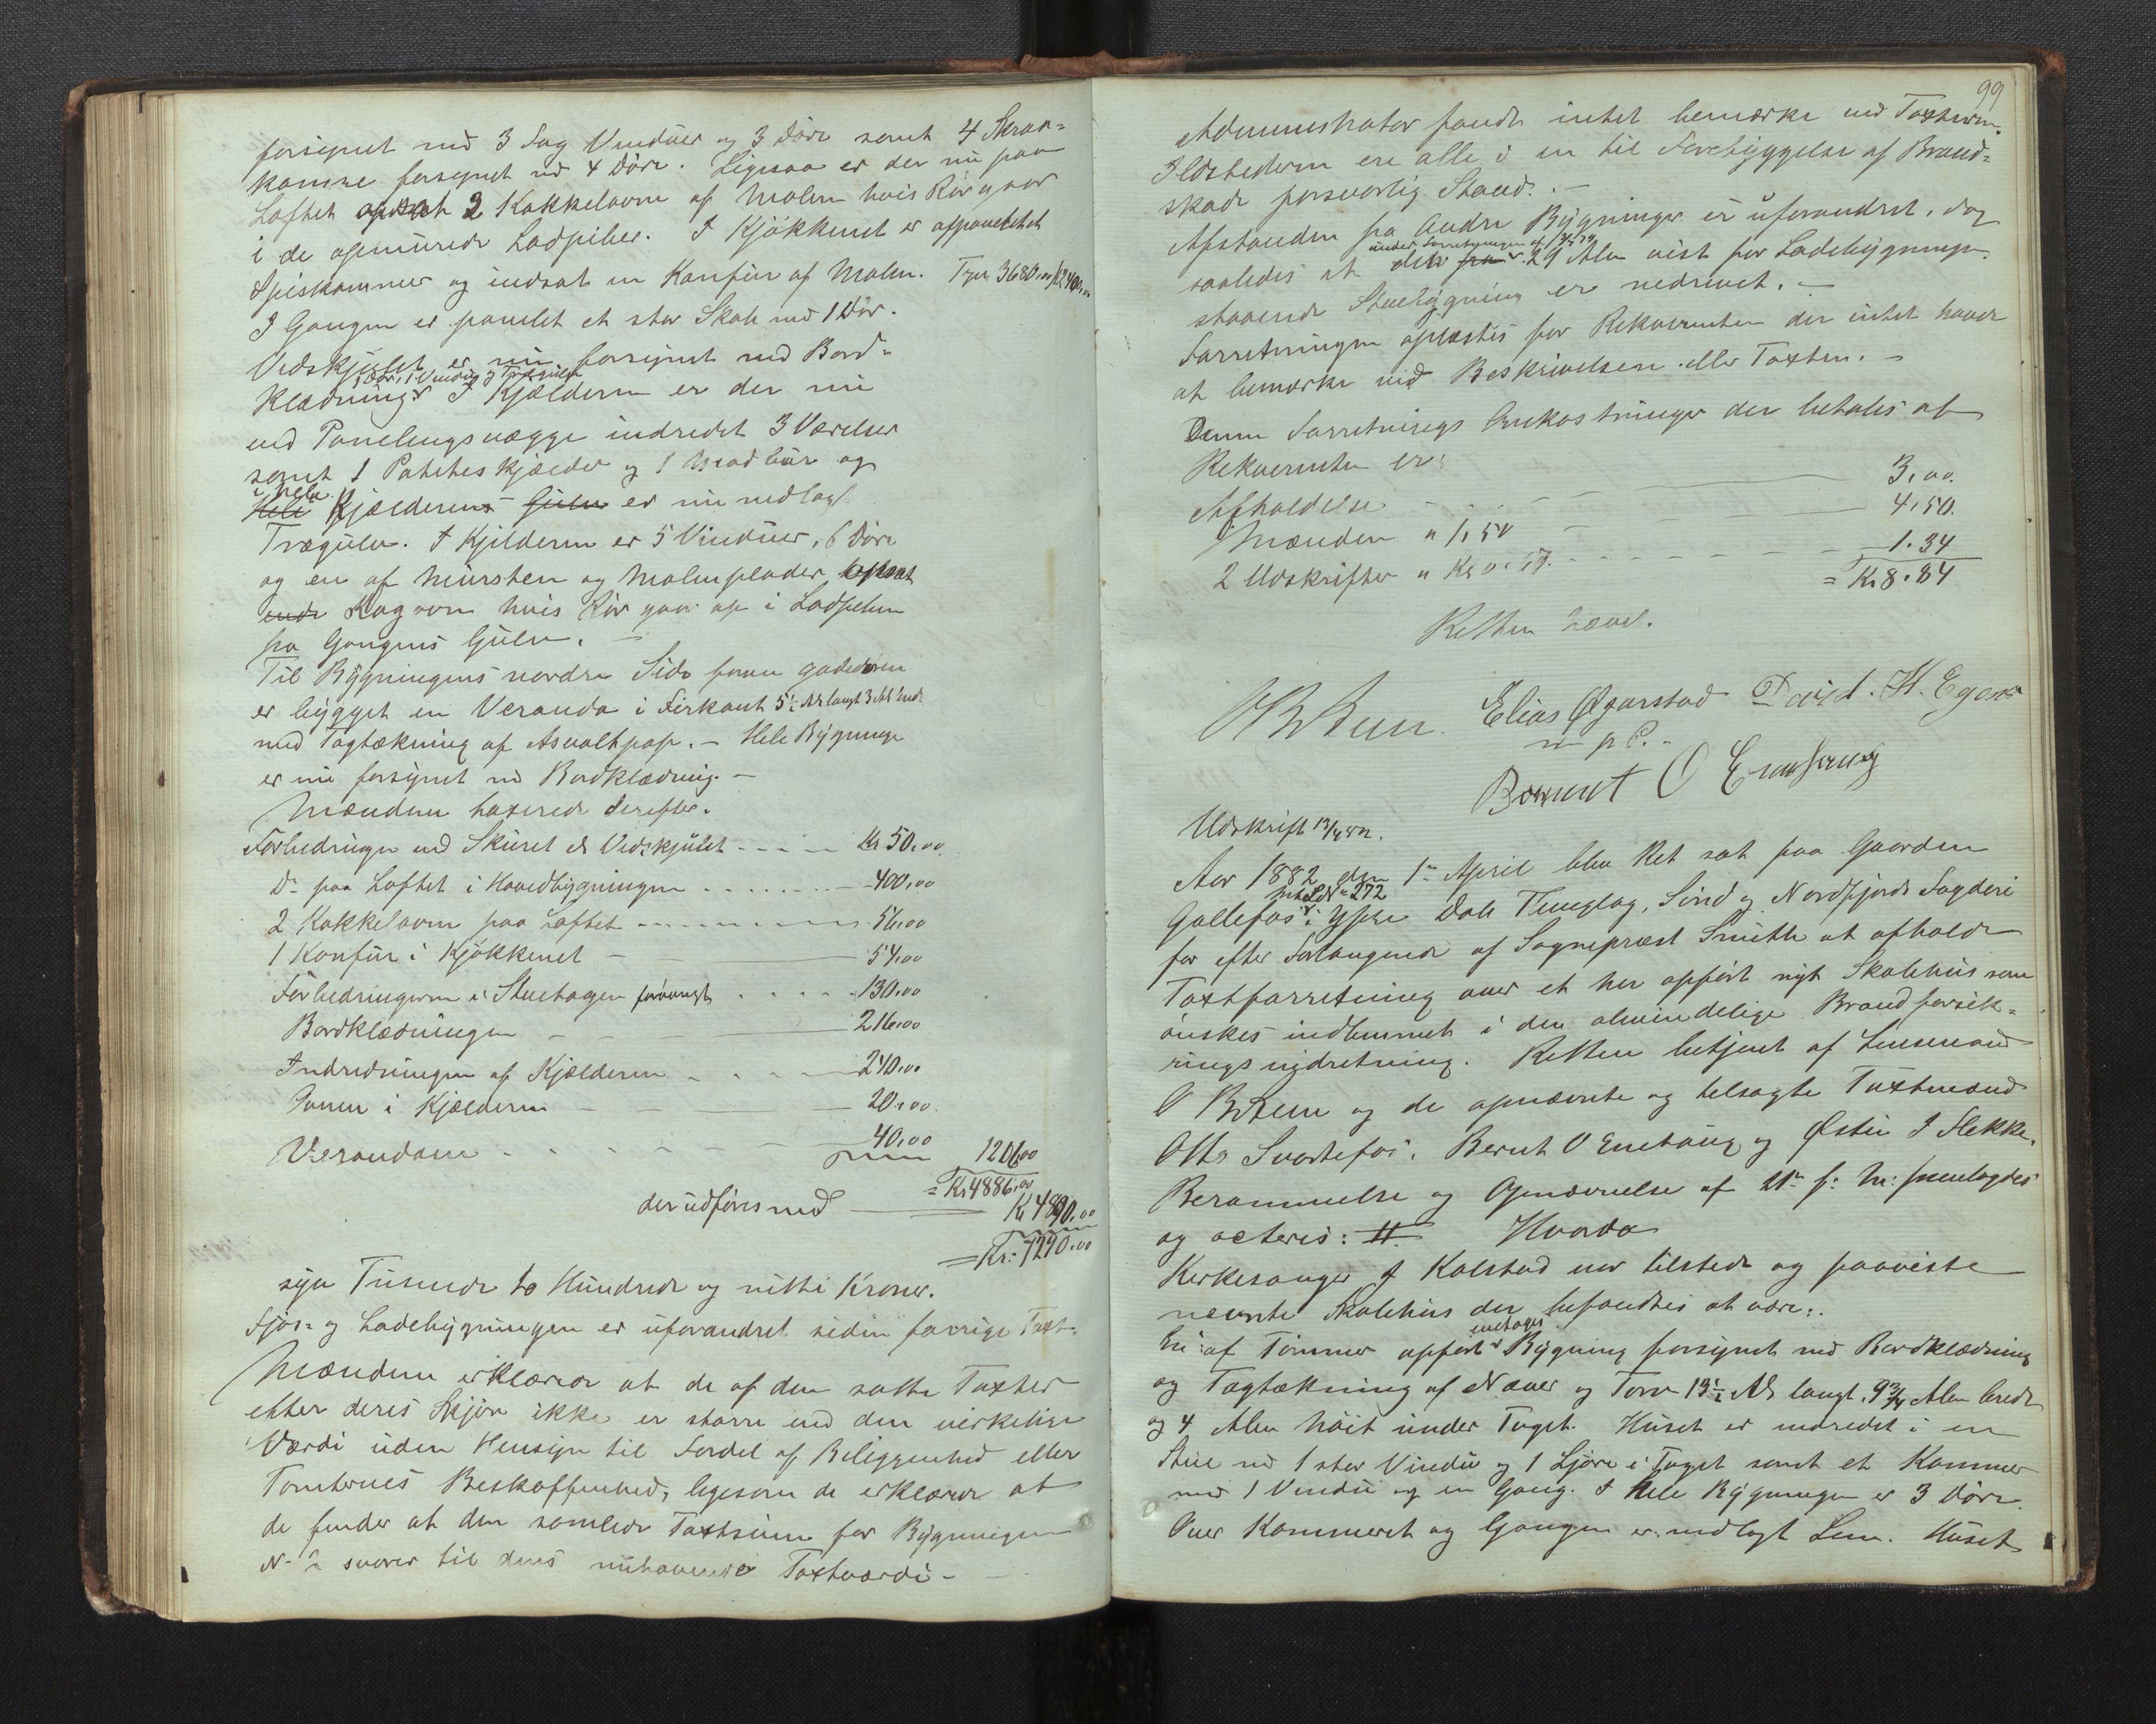 forsynet med 3 Fag Vinduer og 3 Döre samt 4 Skrav=
kamre forsynet md 4 Döre. Ligesaa er der nu paa
Loftet opsat 2 Kakkelovne af Malm hvis Rör gaar
i de opmurede Ladpiber. I Kjökkenet er afpanelet et
Spiskammer og indsat en Komfur af Malm. Frpr 3680,00 K 2400,00
I Gangen er panelet et stor Skab med 1 Dör.
Vedskjulet er nu forsynet med Bord-
1 Dör, 1 Vindu og Trægulv
klædning I Kjælderen er der nu
ved Panelingsvægge indredet 3 Værelser
samt 1 Potetes kjælder og 1 Madbur og
i hele
Hele Kjælderens Gulv er nu nedlagt
Trægulv. I Kjelderen er 5 Vinduer, 6 Döre
og en af Mursten og Malmplader opsat
ende Kogovn hvis Rör gaar op i Ladpiben
fra Gangens Gulv. —
Til Bygningens nordre Side foran gadedøren
er bygget en Veranda i Firkant 5½ Al langt 3 Al bred.
med Tagtækning af Asvaltpap. — Hele Bygninge
er nu forsynet md Bordklædning. —
Mændene taxerede derefter.
Forbedringen ved Skuret & Vedskjulet - - - - Kr 50,00
Do paa Loftet i Hovedbygningen . . . . . . . — 400,00
2 Kakkelovne paa Loftet - - - - - - - 56,00
1 Komfur i Kjökkenet — — 54,00
Forbedringerne i Stuetagen forövrigt . . . . 130,00
Bordklædningen — — — 216,00
Indredningen af Kjælderen — . . — 240,00
Ovnen i Kjælderen — — 20,00
Verandaen . . . . — — 40,00 1206,00
= Kr 4886,00
der udföres med — Kr 4890,00
= Kr: 7290,00
syv Tusende to Hundrede og nitti Kroner.
Fjös- og Ladebygningen er uforandret siden forrige Taxt.
Mændene erklærer at de af dem satte Taxter
efter deres Skjön ikke er større end den virkelige
Værdi uden Hensyn til Fordel af Beliggenhed eller
Tomternes Beskaffenhed, ligesom de erklærer at
de finder at den samlede Taxtsum for Bygningen
No 2 svarer til dens nuhavende Taxtværdi —
99
Administrator fandt intet bemærke ved Taxterne.
Ildstederne ere alle i en til Forebyggelse af Brand=
skade forsvarlig Stand. —
Afstanden fra andre Bygninger er uforandret, dog
under Forretningen af
saaledes at den fra 29 Alen vest for Ladebygningen
staaende Stuebygning er nedrevet. —
Forretningen oplæstes for Rekvirenten der intet havde
at bemærke ved Beskrivelsen eller Taxten. —
Denne Forretnings Omkostninger der betales af
Rekvirenten er:
Afholdelse — — — 3,00.
Mænden a 1,50 — 4,50.
2 Udskrifter a Kr 0.67. - - - - - — 1.34
= Kr 8.84
Retten hævet.
Elias Øgarstad David. H. Egens
m p P.-
Bernnt O Enehaug
Udskrift 13/4 82.
Aar 1882 den 1ste April blev Ret sat paa Gaarden
Mtr LNo 272
Gallefos i Yttre Dale Thinglag, Sönd og Nordfjords Fogderi
for efter Forlangende af Sogneprest Smith at afholde
Taxtforretning over et her opfört nyt Skolehus som
önskes indlemmet i den almindelige Brandforsik=
ringsindretning. Retten betjent af Lensmand
O Bræin og de opnævnte og tilsagte Taxtmænd
Otto Svartefos, Bernt O Enehaug og Østen I Flekke.
Berammelse og Opnævnelse af 21de f: M: fremlagdes
og acteres: H Hvorda
Kirkesanger I Kolstad var tilstede og paaviste
nævnte Skolehus der befandtes at være:
enetages
En af Tömmer opfört Bygning forsynet med Bordklædning
og Tagtækning af Næver og Torv 13½ Al langt, 9¾ Alen bredt
og 4 Alen höit under Taget. Huset er indredet i en
Stue md 1 stor Vindu og 1 Ljore i Taget samt et Kammer
med 1 Vindu og en Gang. I Hele Bygningen er 3 Döre.
Over Kammeret og Gangen er nedlagt Lem. Huset